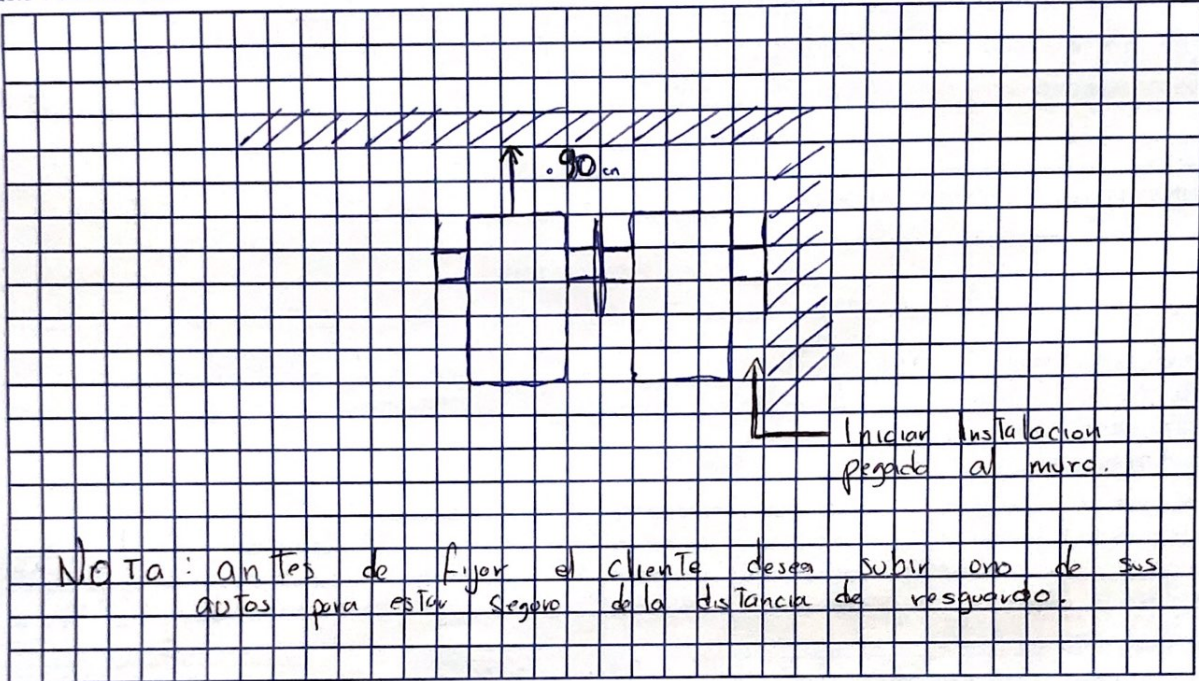 .90 cm
Iniciar Instalacion
pegado al muro.
NOTa: antes de fijar el cliente desea subir uno de sus
autos para estar seguro de la distancia de resguardo.